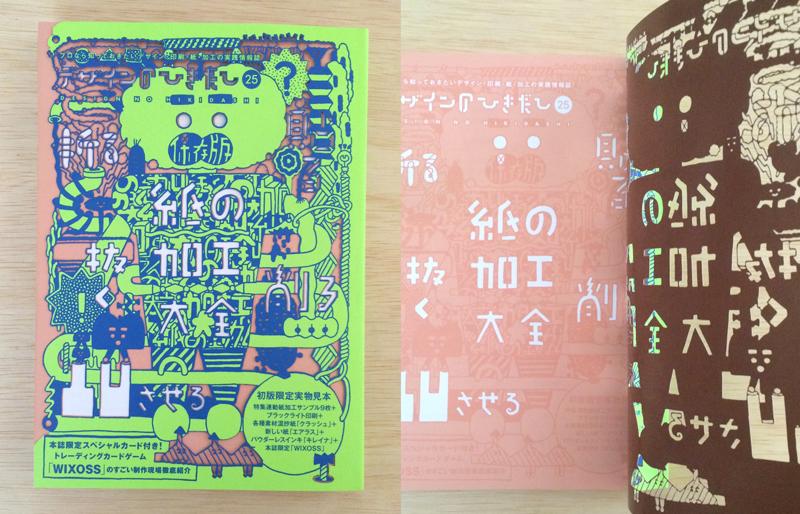 プロなら知っておきたいデザイン・印刷・紙・加工の実践情報誌
デザインのひきだし 25
DESIGN NO HIKIDASHI
保存版
折る
貼る
紙の
加工
大全
抜く
削る
凸凹させる
初版限定実物見本
特集連動紙加工サンプル9枚+
ブラックライト印刷+
各種素材混抄紙「クラッシュ」+
新しい紙「エアラス」+
パウダーレスインキ「キレイナ」+
本誌限定「WIXOSS」
本誌限定スペシャルカード付き!
トレーディングカードゲーム
「WIXOSS」のすごい制作現場徹底紹介
なら知っておきたいデザイン・印刷・紙・加工の実践情報誌
ザインのひきだし 25
SIGN NO HIKIDASHI
折る
貼る
紙の
加工
大全
抜く
削
凹させる